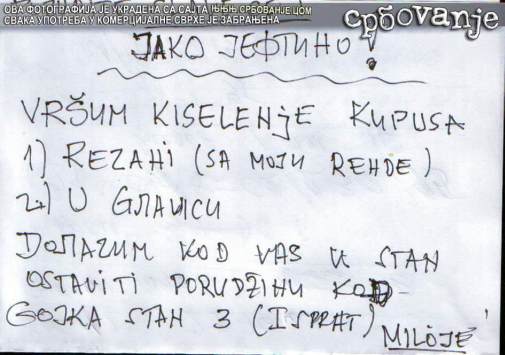 ОВА ФОТОГРАФИЈА ЈЕ УКРАДЕНА СА САЈТА ЊЊЊ.СРБОВАЊЕ.ЦОМ
СВАКА УПОТРЕБА У КОМЕРЦИЈАЛНЕ СВРХЕ ЈЕ ЗАБРАЊЕНА
србоvање
ЈАКО ЈЕФТИНО!
VRŠИM KISELENjE KUPUSA
1) REZAНI (SA MOJU REНDE)
2) U GЛАVICU
DОЛАZИМ KOD VAS U STAN
OSTAVITI PORUDŽIНU KOD
GOJKA STAN 3 (ISPRAT)
MILOJE